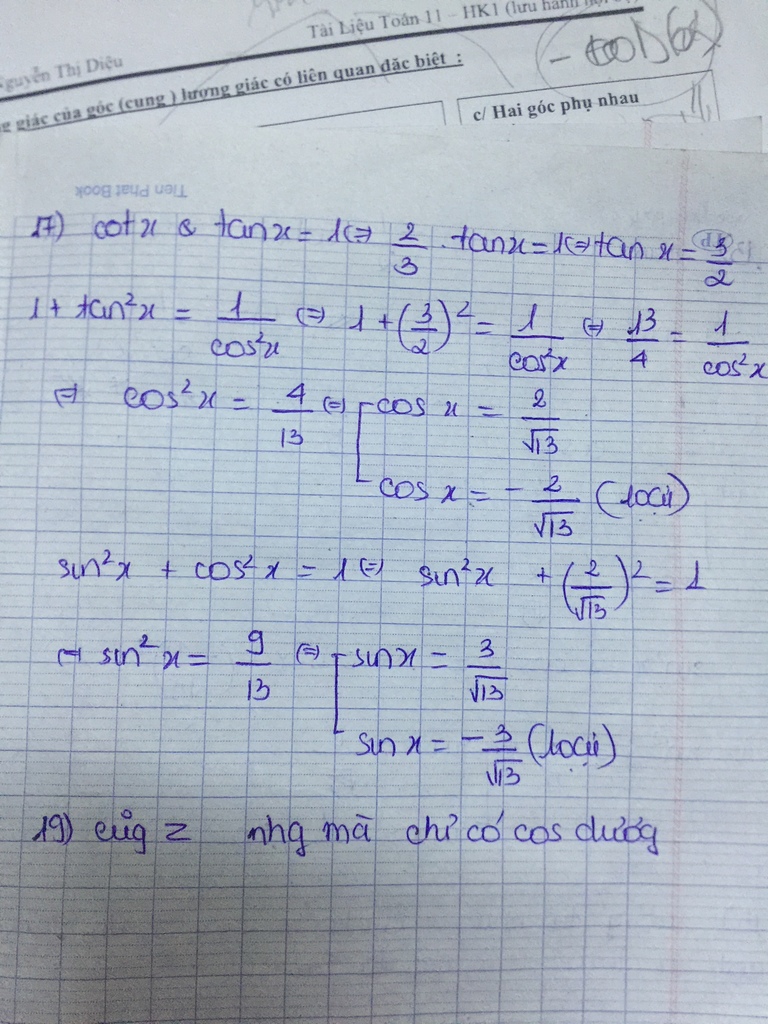 Tài Liệu Toán 11 – HK1 (lưu hành nội
Nguyễn Thị Diệu
g giác của góc (cung ) lượng giác có liên quan đặc biệt :
c/ Hai góc phụ nhau
Tien Phat Book
17) cotx & tanx = 1 ⇔ 2/3 . tanx = 1 ⇔ tan x = 3/2
1 + tan²x = 1/cos²x ⇔ 1 + (3/2)² = 1/cos²x ⇔ 13/4 = 1/cos²x
⇔ cos²x = 4/13 ⇔ cos x = 2/√13
cos x = - 2/√13 (loại)
sin²x + cos²x = 1 ⇔ sin²x + (2/√13)² = 1
⇔ sin²x = 9/13 ⇔ sinx = 3/√13
sin x = - 3/√13 (loại)
19) cũg z nhg mà chỉ có cos dương